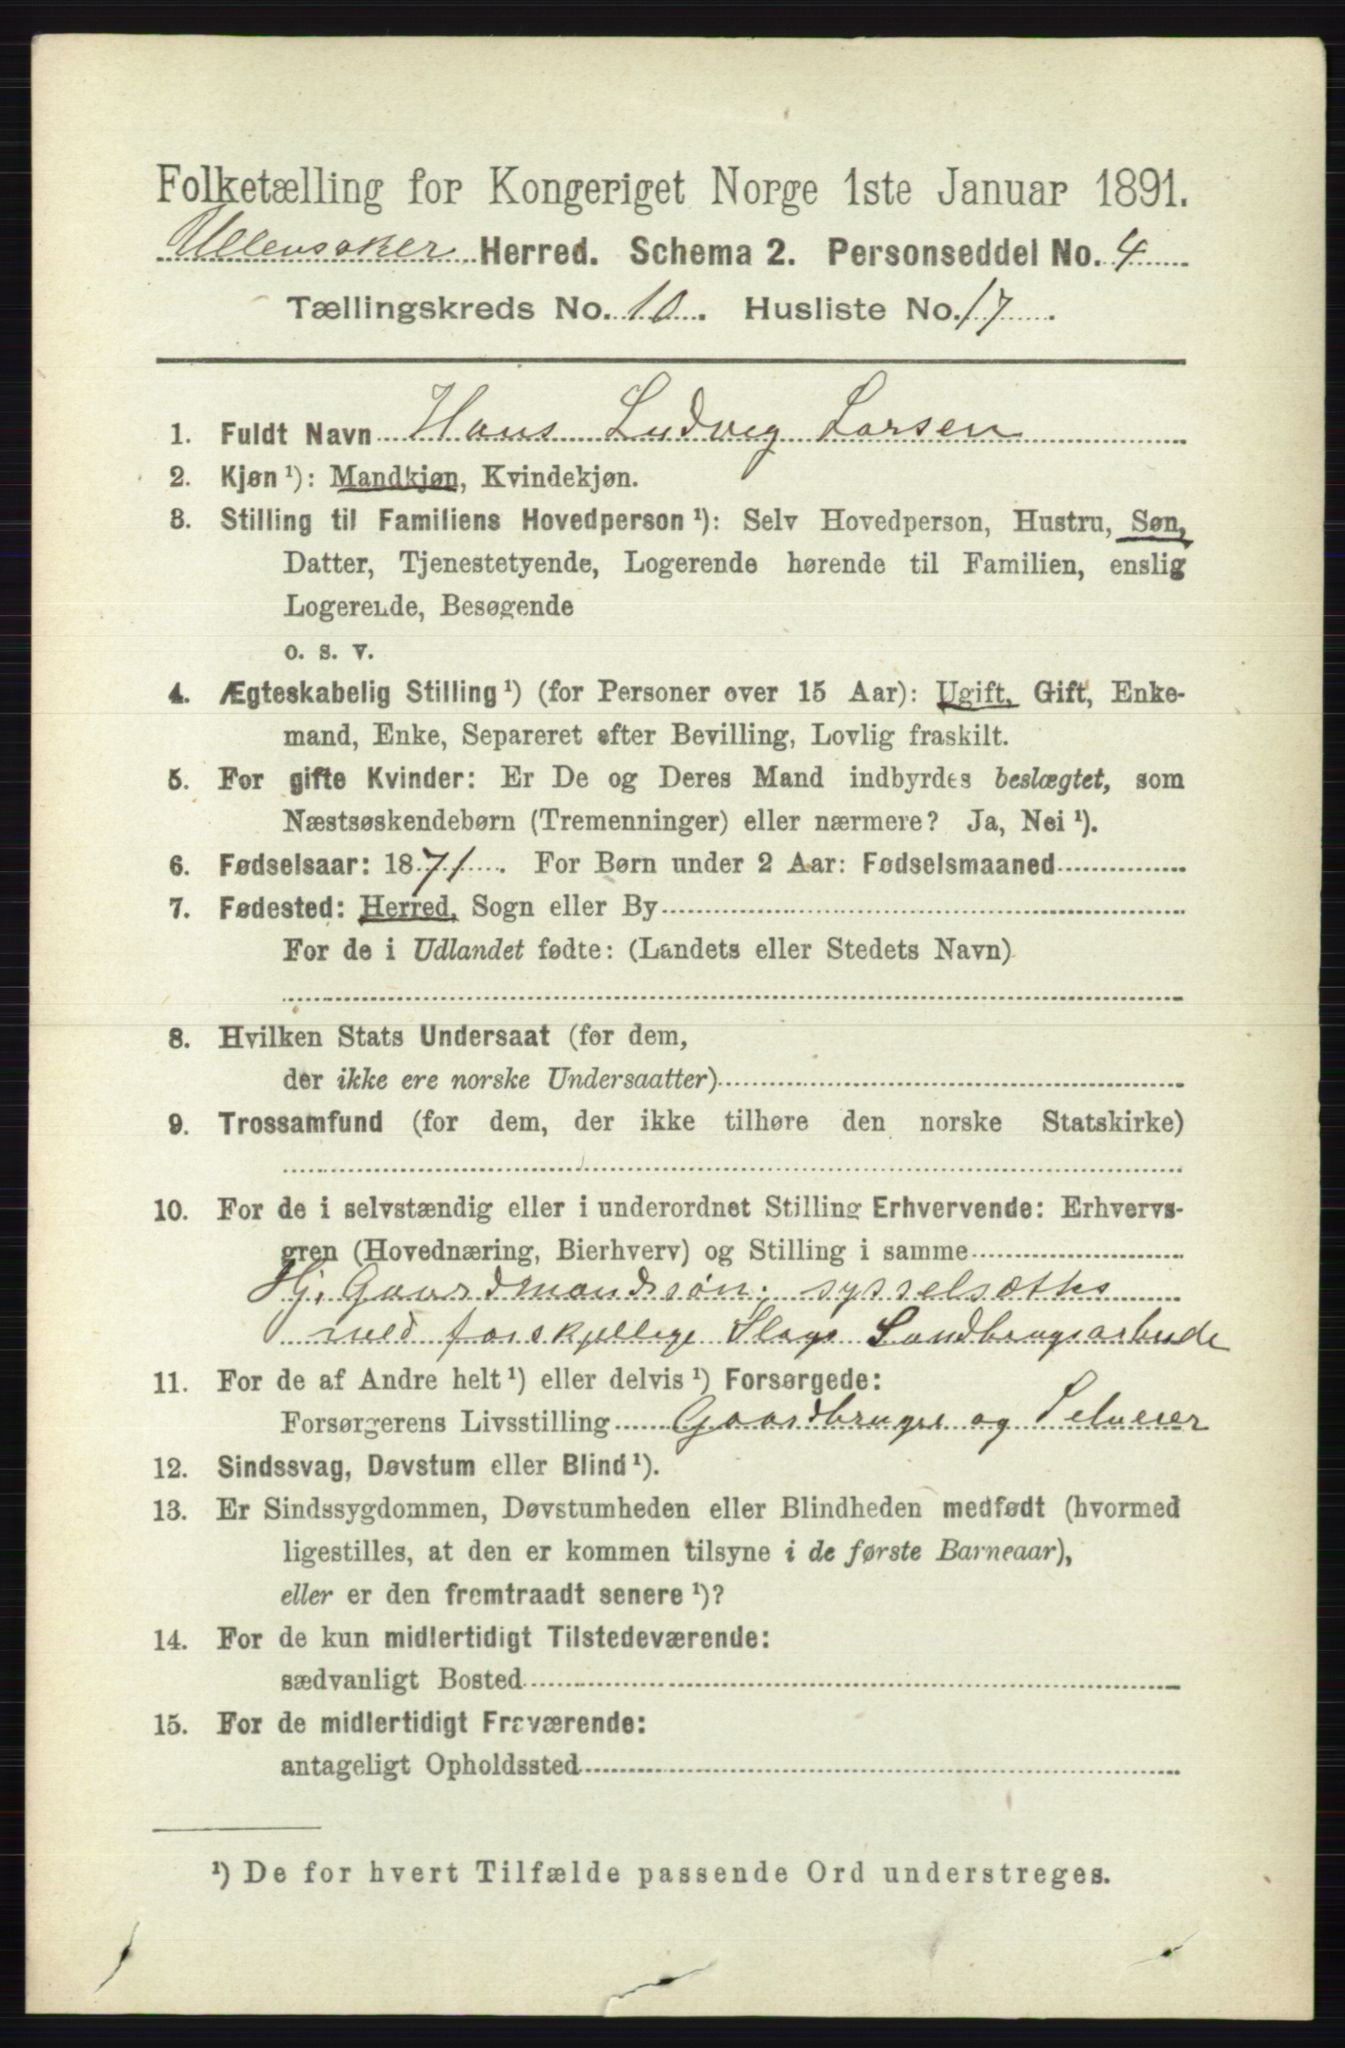 Folketælling for Kongeriget Norge 1ste Januar 1891.
Ullensaker Herred. Schema 2. Personseddel No. 4
Tællingskreds No. 10. Husliste No. 17
1. Fuldt Navn Hans Ludvig Larsen
2. Kjøn¹): Mandkjøn, Kvindekjøn.
3. Stilling til Familiens Hovedperson¹): Selv Hovedperson, Hustru, Søn,
Datter, Tjenestetyende, Logerende hørende til Familien, enslig
Logerende, Besøgende
o. s. v.
4. Ægteskabelig Stilling¹) (for Personer over 15 Aar): Ugift, Gift, Enke-
mand, Enke, Separeret efter Bevilling, Lovlig fraskilt.
5. For gifte Kvinder: Er De og Deres Mand indbyrdes beslægtet, som
Næstsøskendebørn (Tremenninger) eller nærmere? Ja, Nei¹).
6. Fødselsaar: 1871. For Børn under 2 Aar: Fødselsmaaned
7. Fødested: Herred, Sogn eller By
For de i Udlandet fødte: (Landets eller Stedets Navn)
8. Hvilken Stats Undersaat (for dem,
der ikke ere norske Undersaatter)
9. Trossamfund (for dem, der ikke tilhøre den norske Statskirke)
10. For de i selvstændig eller i underordnet Stilling Erhvervende: Erhvervs-
gren (Hovednæring, Bierhverv) og Stilling i samme
Hj. Gaardmandssøn; sysselsættes
med forskjellige Slags Landbrugsarbeide
11. For de af Andre helt¹) eller delvis¹) Forsørgede:
Forsørgerens Livsstilling Gaardbruger og Selveier
12. Sindssvag, Døvstum eller Blind¹).
13. Er Sindssygdommen, Døvstumheden eller Blindheden medfødt (hvormed
ligestilles, at den er kommen tilsyne i de første Barneaar),
eller er den fremtraadt senere¹)?
14. For de kun midlertidigt Tilstedeværende:
sædvanligt Bosted
15. For de midlertidigt Fraværende:
antageligt Opholdssted
¹) De for hvert Tilfælde passende Ord understreges.